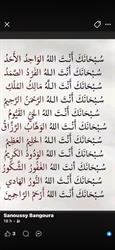 سُبْحَانَكَ أَنْتَ اللهُ الوَاحِدُ الأَحَدُ
سُبْحَانَكَ أَنْتَ اللهُ الفَرْدُ الصَّمَدُ
سُبْحَانَكَ أَنْتَ اللهُ مَالِكُ المُلْكِ
سُبْحَانَكَ أَنْتَ اللهُ الرَّحْمَنُ الرَّحِيمُ
سُبْحَانَكَ أَنْتَ اللهُ الحَيُّ القَيُّومُ
سُبْحَانَكَ أَنْتَ اللهُ الوَهَّابُ الرَّزَّاقُ
سُبْحَانَكَ أَنْتَ اللهُ الحَلِيمُ العَظِيمُ
سُبْحَانَكَ أَنْتَ اللهُ الوَدُودُ الكَرِيمُ
سُبْحَانَكَ أَنْتَ اللهُ الغَفُورُ الشَّكُورُ
سُبْحَانَكَ أَنْتَ اللهُ النُّورُ الهَادِي
سُبْحَانَكَ أَنْتَ اللهُ أَرْحَمُ الرَّاحِمِينَ
Sanoussy Bangoura
18 h